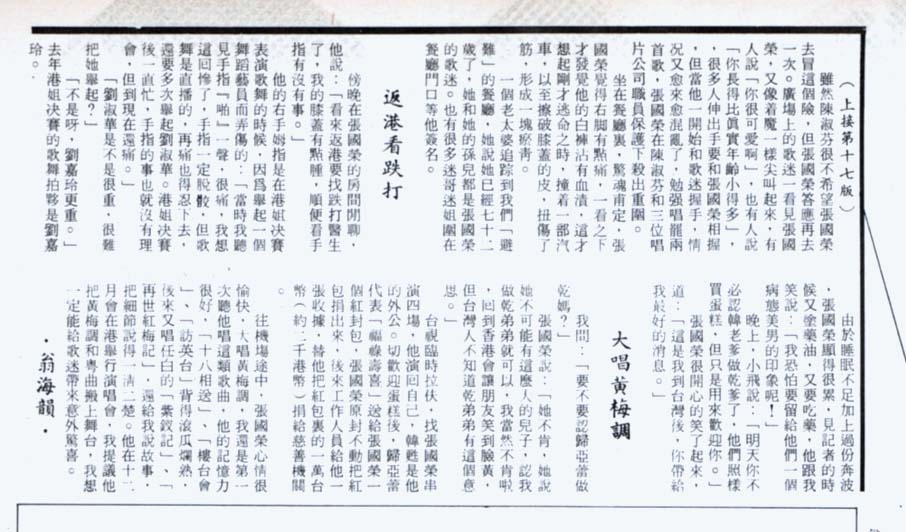 （上接第十七版）
雖然陳淑芬很不希望張國榮
去冒這個險，但張國榮答應再去
一次。廣場上的歌迷一看見張國
榮，又像着魔一樣尖叫起來，有
人說「你很可愛啊」，也有人說
「你長得比眞實年齡小得多」
，很多人伸出手要和張國榮相握
，但當他一開始和歌迷握手，情
況又愈來愈混亂了，勉强唱罷兩
首歌，張國榮在陳淑芬和三位唱
片公司職員保護下殺出重圍。
坐在餐廳裏，驚魂甫定，張
國榮覺得右脚有點痛，一看之下
才發覺他的白褲沾有血漬，這才
想起剛才逃命之時，撞着一部汽
車，以至擦破膝蓋的皮，扭傷了
筋，形成一塊瘀靑。
一個老太婆追踪到我們「避
難」的餐廳，她說她已經七十二
歲了，她和她的孫兒都是張國榮
的歌迷。也有很多迷哥迷姐圍在
餐廳門口等他簽名。
返港看跌打
傍晚在張國榮的房間閒聊，
他說：「看來返港要找跌打醫生
了，我的膝蓋有點腫，順便看手
指有沒有事。」
他的右手姆指是在港姐決賽
表演歌舞的時候，因爲舉起一個
舞蹈藝員而弄傷的：「當時我聽
見手指『啪』一聲，很痛，我想
這回慘了，手指一定脫骹，但歌
舞是直播的，再痛也得忍下去，
還要多次舉起劉淑華。港姐決賽
後一直忙，手指的事也就沒有理
會，但到現在還痛。」
「劉淑華是不是很重，很難
把她舉起？」
「不是呀，劉嘉玲更重。」
去年港姐決賽的歌舞拍夥是劉嘉
玲。
由於睡眠不足加上過份奔波
，張國榮顯得很累，見記者的時
候又塗藥油，又要吃藥，他跟我
笑說：「我恐怕要留給他們一個
病態美男的印象呢！」
晚上，小飛說：「明天你不
必認韓老爹做乾爹了，他們照樣
買蛋糕，但只是用來歡迎你。」
張國榮很開心的笑了起來，
道：「這是我到台灣後，你帶給
我最好的消息。」
大唱黃梅調
我問：「要不要認歸亞蕾做
乾媽？」
張國榮說：「她不肯，她說
她不可能有這麼大的兒子，認我
做乾弟弟就可以，我當然不肯啦
，回到香港會讓朋友笑到臉黃，
但台灣人不知道乾弟弟有這個意
思。」
台視臨時拉伕，找張國榮串
演四場，他演回自己，韓甦是他
的外公。切歡迎蛋糕後，歸亞蕾
代表「福祿壽喜」送給張國榮一
個紅封包，張國榮原封不動把紅
包捐出來，後來工作人員給他一
張收據，替他把紅包裏的一萬台
幣（約二千港幣）捐給慈善機關
。
往機場途中，張國榮心情很
愉快，大唱黃梅調，我還是第一
次聽他唱這類歌曲，他的記憶力
很好，「十八相送」、「樓台會
」、「訪英台」背得滾瓜爛熟，
後來又唱任白的「紫釵記」、「
再世紅梅記」，還給我說故事，
把細節說得一淸二楚。他在十二
月會在港舉行演唱會，我提議他
把黃梅調和粤曲搬上舞台，我想
一定能給歌迷帶來意外驚喜。
·翁海韻·